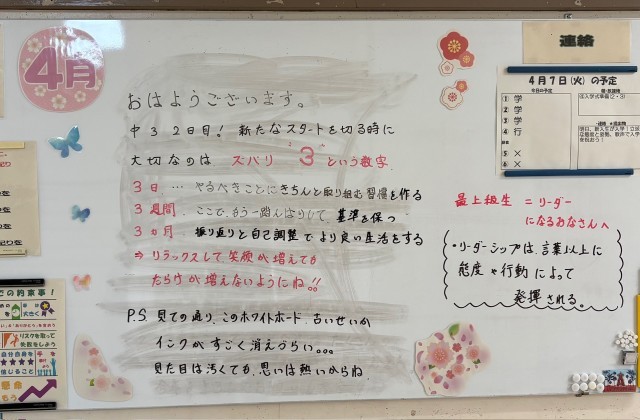 4月
おはようございます。
中3 2日目! 新たなスタートを切る時に
大切なのは ズバリ 3 という数字。
3日 … やるべきことにきちんと取り組む習慣を作る
3週間 ここで、もう一踏んばりして、基準を保つ
3ヵ月 振り返りと自己調整でより良い生活をする
⇒ リラックスして、笑顔が増えても
だらけが増えないようにね!!
P.S. 見ての通り、このホワイトボード、古いせいか
インクがすごく消えづらい。。。
見た目は汚くても、思いは熱いからね。
連絡
4月7日(火)の予定
今日の予定
① 学
② 学
③ 学
④ 行
⑤ ×
⑥ ×
④入学式準備(2・3)
最上級生 = リーダー
になるみなさんへ
・リーダーシップは、言葉以上に
態度や行動によって
発揮される。
の約束事!
リスクを取って
失敗をしよう